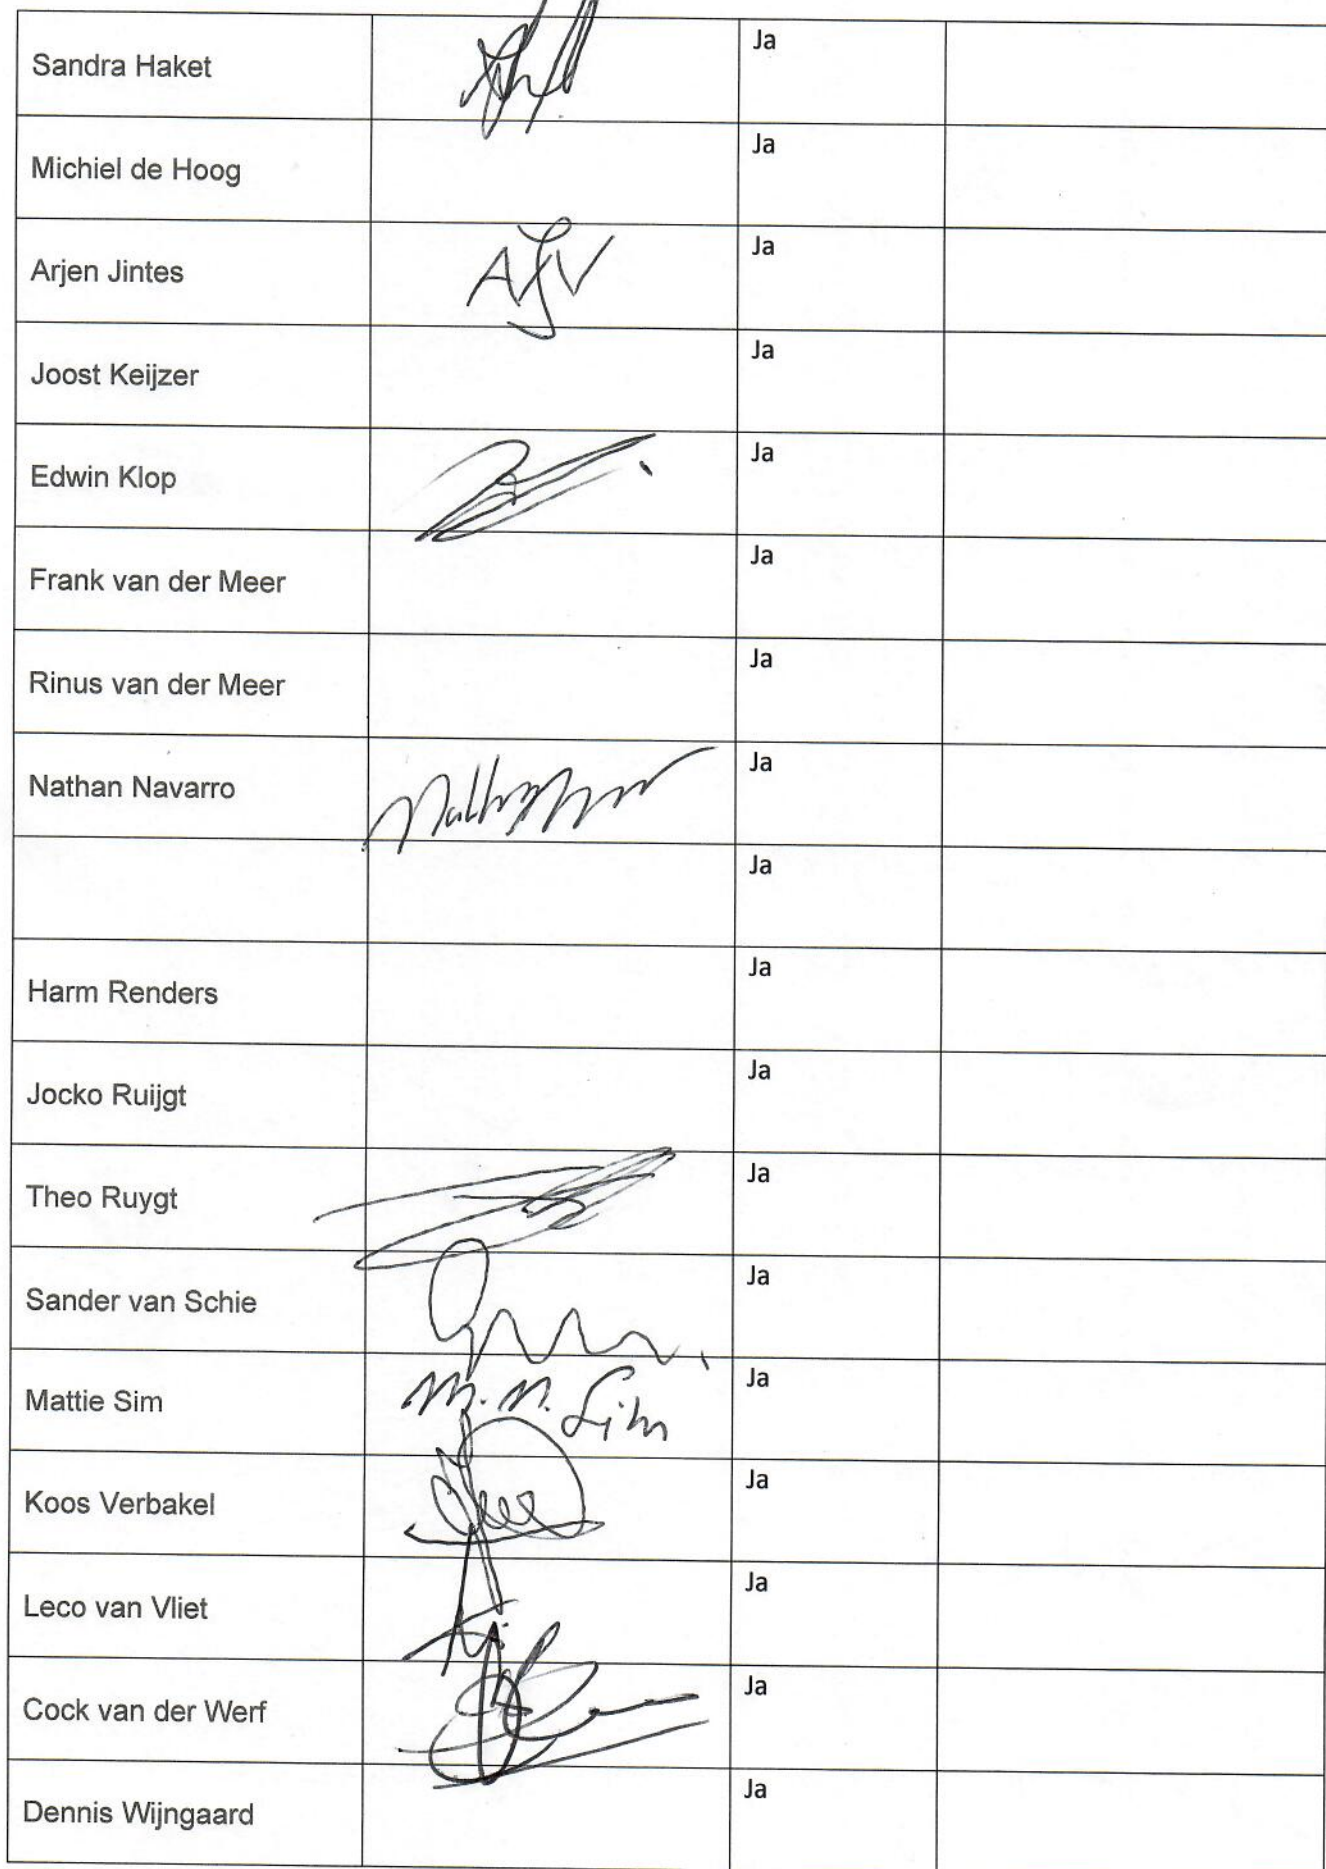 Sandra Haket Ja
Michiel de Hoog Ja
Arjen Jintes AJV Ja
Joost Keijzer Ja
Edwin Klop Ja
Frank van der Meer Ja
Rinus van der Meer Ja
Nathan Navarro Ja
Ja
Harm Renders Ja
Jocko Ruijgt Ja
Theo Ruygt Ja
Sander van Schie Ja
Mattie Sim M. M. Sim Ja
Koos Verbakel Ja
Leco van Vliet Ja
Cock van der Werf Ja
Dennis Wijngaard Ja